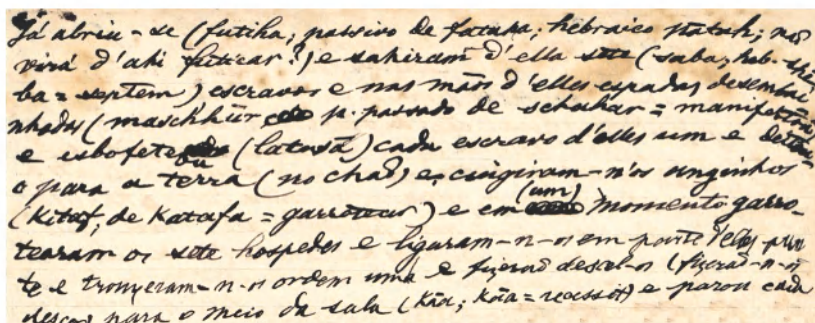 Já abriu-se (futiha; passivo de fataha; hebraico pátah; não
virá d'ahi futicar?) e sahiram d'ella sete (saba; heb. she
ba = septem) escravos e nas mãos d'elles espadas desembai
nhadas (maschhūr p. passado de schahar = manifestar)
e esbofeteou (latasa) cada escravo d'elles um e deitou
o para a terra (no chão) e cingiram-n'os anginhos
(Kitaf, de Katafa = garrotear) e em (um) momento garro-
tearam os sete hospedes e ligaram-n-os em ponte
te e trouxeram-n-os ordem uma e fizerão descel-os (fizerão-n-os
descer para o meio da sala (Kāa; Kāa = recessos) e parou cada